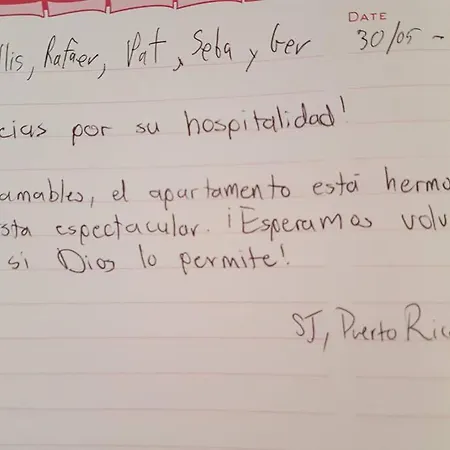 DATE
llis, Rafaer, Pat, Seba y Ger 30/05 -
cias por su hospitalidad!
amables, el apartamento está hermo
sta espectacular. ¡Esperamos volv
si Dios lo permite!
SJ, Puerto Ric